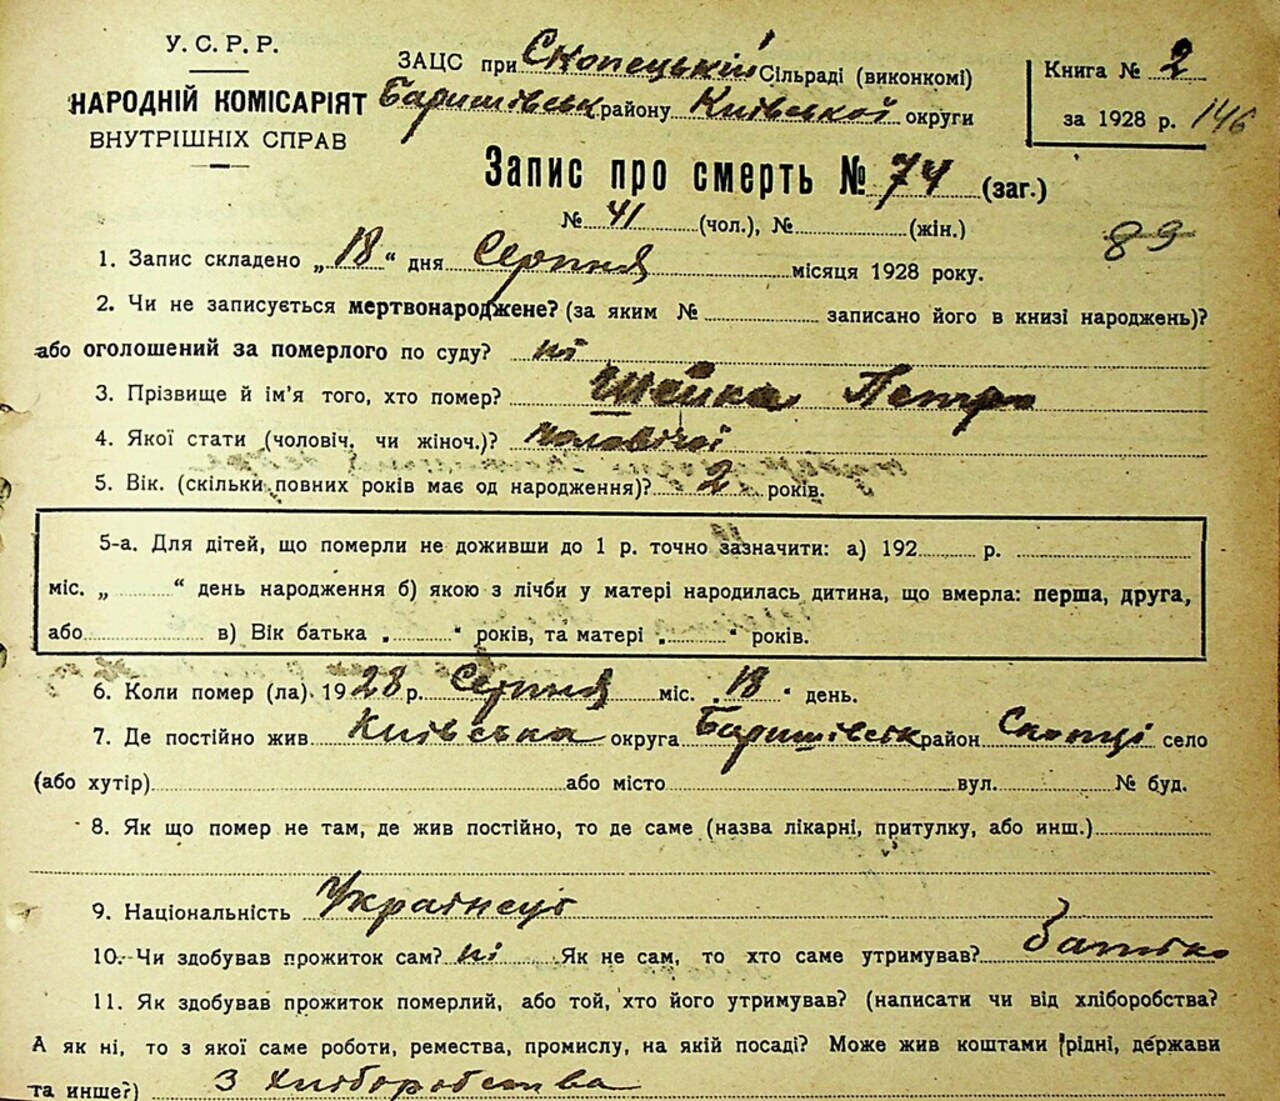 У. С. Р. Р.
НАРОДНІЙ КОМІСАРІЯТ
ВНУТРІШНІХ СПРАВ
ЗАЦС при Скопецькій Сільраді (виконкомі)
Баришівськ району Київської округи
Книга № 2
за 1928 р. 146
Запис про смерть № 74 (заг.)
№ 41 (чол.), № (жін.)
89
1. Запис складено „ 18 “ дня Серпня місяця 1928 року.
2. Чи не записується мертвонароджене? (за яким № записано його в книзі народжень)?
або оголошений за померлого по суду? ні
3. Прізвище й ім'я того, хто помер? Шейка Петро
4. Якої стати (чоловіч. чи жіноч.)? чоловічої
5. Вік. (скільки повних років має од народження)? 2 років.
5-а. Для дітей, що померли не доживши до 1 р. точно зазначити: а) 192 р.
міс. „ “ день народження б) якою з лічби у матері народилась дитина, що вмерла: перша, друга,
або в) Вік батька „ “ років, та матері „ “ років.
6. Коли помер (ла) 1928 р. Серпня міс. „ 18 “ день.
7. Де постійно жив Київська округа Баришівськ район Скопці село
(або хутір) або місто вул. № буд.
8. Як що помер не там, де жив постійно, то де саме (назва лікарні, притулку, або инш.)
9. Національність Українець
10. Чи здобував прожиток сам? ні Як не сам, то хто саме утримував? Батько
11. Як здобував прожиток померлий, або той, хто його утримував? (написати чи від хліборобства?
А як ні, то з якої саме роботи, ремества, промислу, на якій посаді? Може жив коштами рідні, держави
та инше?) З Хліборобства